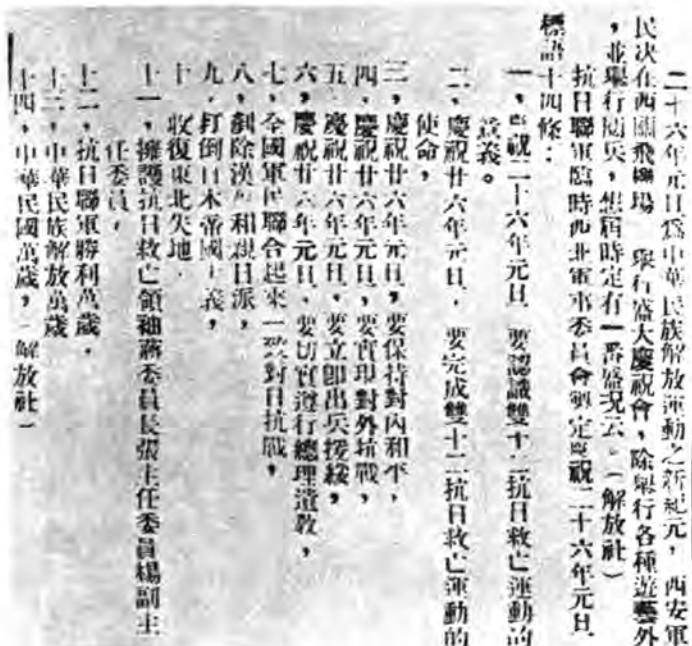 二十六年元旦爲中華民族解放運動之新紀元，西安軍
民決在西關飛機場　舉行盛大慶祝會，除舉行各種遊藝外
，並舉行閱兵，想屆時定有一番盛况云。（解放社）
抗日聯軍臨時西北軍事委員會製定慶祝二十六年元旦
標語十四條：
一，慶祝二十六年元旦　要認識雙十二抗日救亡運動的
意義。
二，慶祝廿六年元旦，要完成雙十二抗日救亡運動的
使命，
三，慶祝廿六年元旦，要保持對內和平，
四，慶祝廿六年元旦，要實現對外抗戰，
五，慶祝廿六年元旦，要立卽出兵援綏，
六，慶祝廿六年元旦，要切實遵行總理遺敎，
七，全國軍民聯合起來一致對日抗戰，
八，剷除漢奸和親日派，
九，打倒日本帝國主義，
十　收復東北失地，
十一，擁護抗日救亡領袖蔣委員長張主任委員楊副主
任委員，
十二，抗日聯軍勝利萬歲，
十三，中華民族解放萬歲
十四，中華民國萬歲，（解放社）